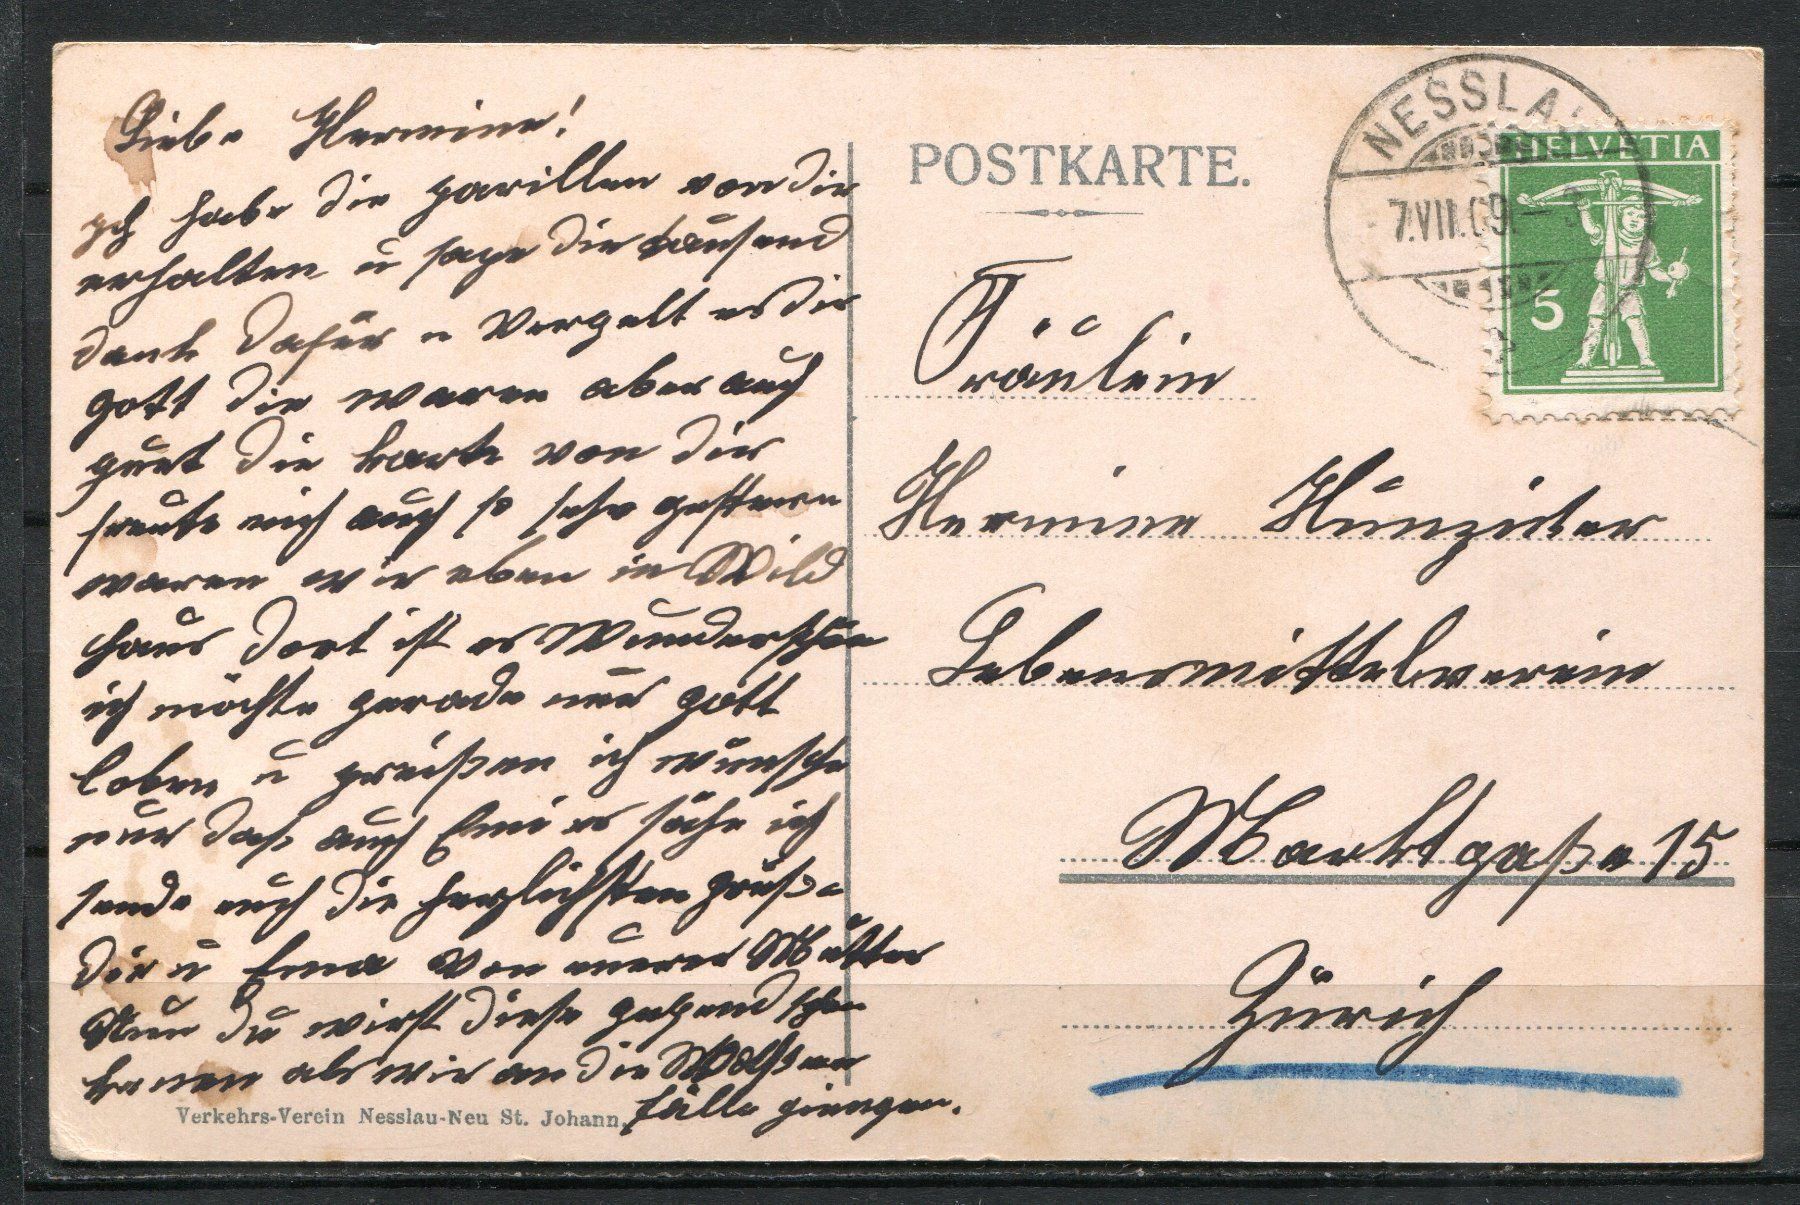 Liebe Hermine!
Ich habe die parillen von dir
erhalten u sage dir tausend
dank dafür u Vergelt es dir
gott die waren aber auch
guet die karte von dir
freute mich auch so sehr gestern
waren wir eben in Wild
haus dort ist es Wunderschön
ich möchte gerade nur gott
loben u preißen ich wünsche
nur daß auch Emi es sähe ich
sende euch die herzlichsten grüße
dir u Ema von euerer Mutter
Nun du wirst diese gegend schon
kennen als wir an die
fälle giengen.
Verkehrs-Verein Nesslau-Neu St. Johann.
POSTKARTE.
NESSLAU
7.VII.09.
HELVETIA
5
Fräulein
Hermine Hunziker
Lebensmittelverein
Marktgaße 15
Zürich